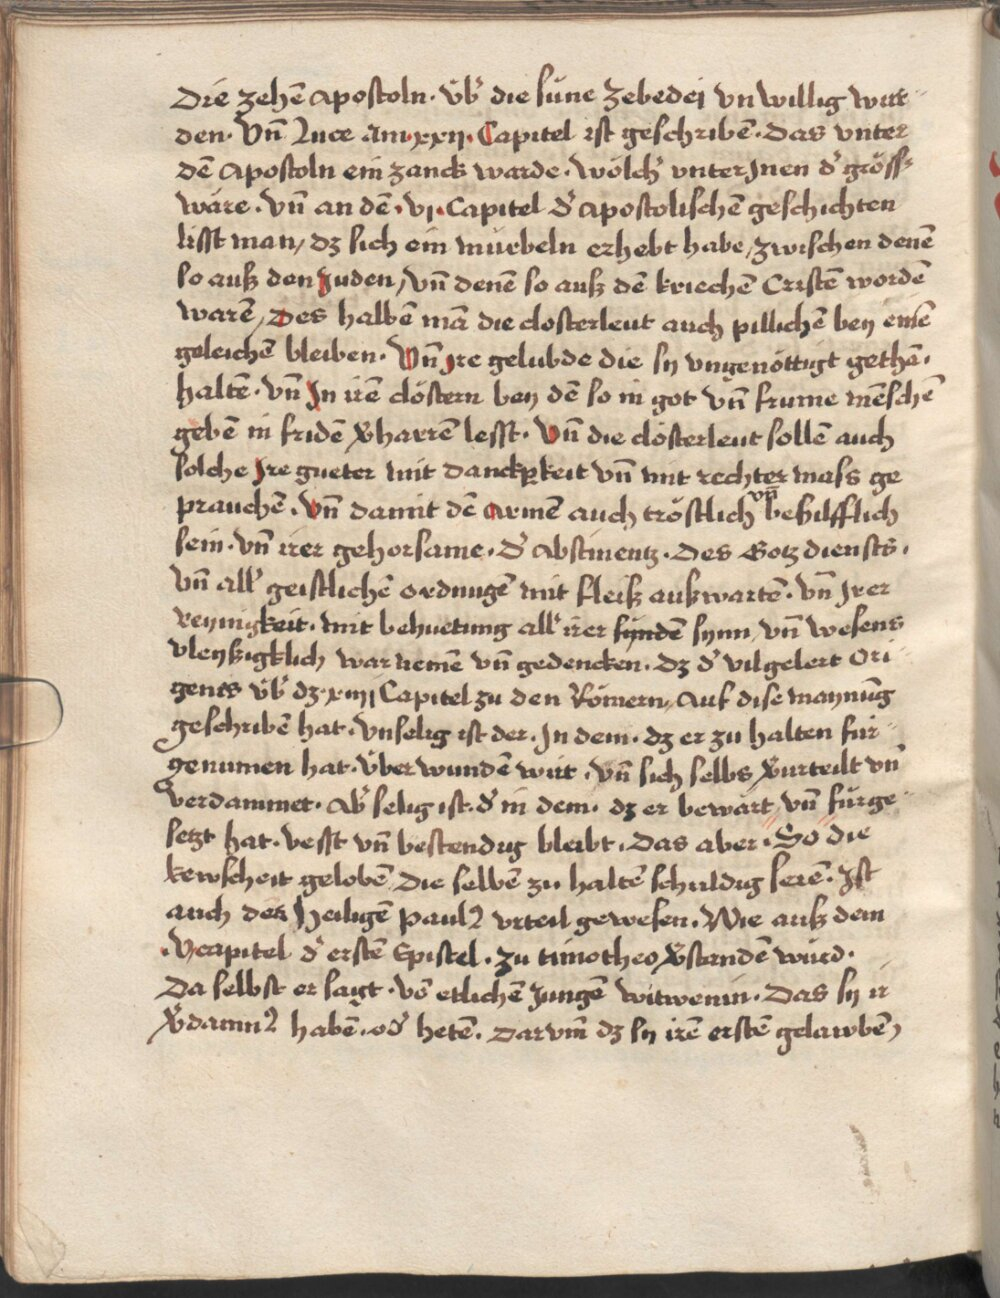 Die zehē Apostoln · v̈b' die süne Zebedej vnwillig wur-
den · Vn̄ Luce Am · xxij · Capitel ist geschribē · Das vnter
dē Apostoln ein zanck warde · wölch' vnter Jnen d' gröss-
wäre · vn̄ an dē · vj · Capitel d' Apostolischē geschichten
lisst man / dz sich ein mürbeln erhebt habe / zwischen denē
so auß den Juden / vn̄ denē so auß dē kriechē Cristē wordē
warē / Des halbē mā die closterleut auch pillichē bey einē
geleichē bleiben · Vn̄ Jre gelubde die sy vngenöttigt gethā ·
haltē · vn̄ Jn irē clöstern bey dē so in got vn̄ frume mēschē
gebē in fridē v̄harrē lesst · Vn̄ die closterleut sollē auch
solche Jre gueter mit danckp̱keit vn̄ mit rechter mass ge
prauchē · Vn̄ damit dē Armē auch tröstlich vn̄ behilfflich
sein · vn̄ irer gehorsame · d' Abstinentz · Des Gotzdiensts ·
Vn̄ all' geistlichē ordnungē mit fleiß außwartē · vn̄ Jrer
Reynigkeit · mit behuetung all' irer synn / vn̄ wesens
vleyßigklich war nemē vn̄ gedencken · Dz d' vilgelert Ori-
genes v̈b' dz · xiiij Capitel zu den Römern / Auf dise maynūg
geschribē hat · vnselig ist der · Jn dem · dz er zu halten für-
genumen hat · v̈berwundē wirt · vn̄ sich selbs v̄urteilt vn̄
verdammet · Ab' selig ist · d' in dem · dz er bewärt vn̄ fürge-
setzt hat · vesst vn̄ bestendig bleibt · Das aber · So die
kewscheit geloben / Die selbē zu haltē schuldig seiē · Jst
auch des Heiligē Pauls vrteil gewesen · Wie auß dem
· V capitel d' erstē Epistel · zu timotheo v̄standē würd ·
Da selbst er sagt · vō etlichē Jungē witwenin · Das sy ir
v̄damn9 habē · od' hetē · Darvm̄ dz sy irē erstē gelawbē